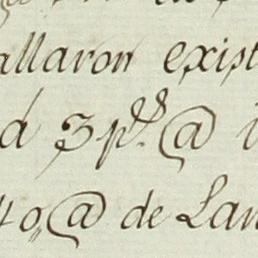 allaron exist
d 3 p.s @
40,, @ de Lan